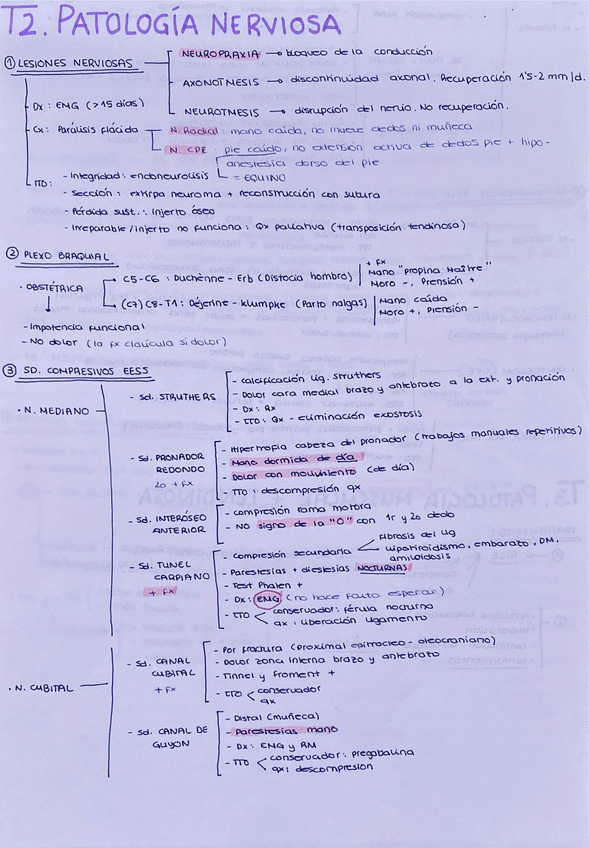 T2. PATOLOGÍA NERVIOSA
① LESIONES NERVIOSAS
NEUROPRAXIA → bloqueo de la conducción
AXONOTMESIS → discontinuidad axonal. Recuperación 1'5-2 mm/d.
NEUROTMESIS → disrupción del nervio. No recuperación.
Dx: EMG (>15 días)
Cx: Parálisis flácida
N. Radial: mano caída, no mueve dedos ni muñeca
N. CPE: pie caído, no extensión activa de dedos pie + hipo-
anestesia dorso del pie
= EQUINO
TTO:
- Integridad: endoneurolisis
- Sección: extirpa neuroma + reconstrucción con sutura
- Pérdida sust.: Injerto óseo
- Irreparable/injerto no funciona: Qx paliativa (transposición tendinosa)
② PLEXO BRAQUIAL
· OBSTÉTRICA
C5-C6: Duchenne-Erb (Distocia hombro)
+ FX
Mano "propina Maître"
Moro -, Prensión +
(C7) C8-T1: Déjerine-Klumpke (Parto nalgas)
Mano caída
Moro +, Prensión -
- Impotencia funcional
- No dolor (la fx clavícula sí dolor)
③ SD. COMPRESIVOS EESS
· N. MEDIANO
- Sd. STRUTHERS
- Calcificación lig. Struthers
- Dolor cara medial brazo y antebrato a la ext. y pronación
- Dx: Rx
- TTO: Qx - eliminación exostosis
- Sd. PRONADOR
REDONDO
2o + FX
- Hipertropia cabeza del pronador (trabajos manuales repetitivos)
- Mano dormida de día
- Dolor con movimiento (de día)
- TTO: descompresión qx
- Sd. INTERÓSEO
ANTERIOR
- Compresión rama motora
- NO signo de la "O" con 1r y 2o dedo
- Sd. TUNEL
CARPIANO
+ FX
- Compresión secundaria
Fibrosis del lig
Hipotiroidismo, embarato, DM,
amiloidosis
- Parestesias + diestesias NOCTURNAS
- Test Phalen +
- Dx: EMG (no hace falta esperar)
- TTO
conservador: férula nocturna
qx: liberación ligamento
· N. CUBITAL
- Sd. CANAL
CUBITAL
+ FX
- Por fractura (proximal epitrocleo-oleocraniano)
- Dolor zona interna brazo y antebrato
- Tinnel y Froment +
- TTO
conservador
qx
- Sd. CANAL DE
GUYON
- Distal (muñeca)
- Parestesias mano
- Dx: EMG y RM
- TTO
conservador: pregabalina
qx: descompresión